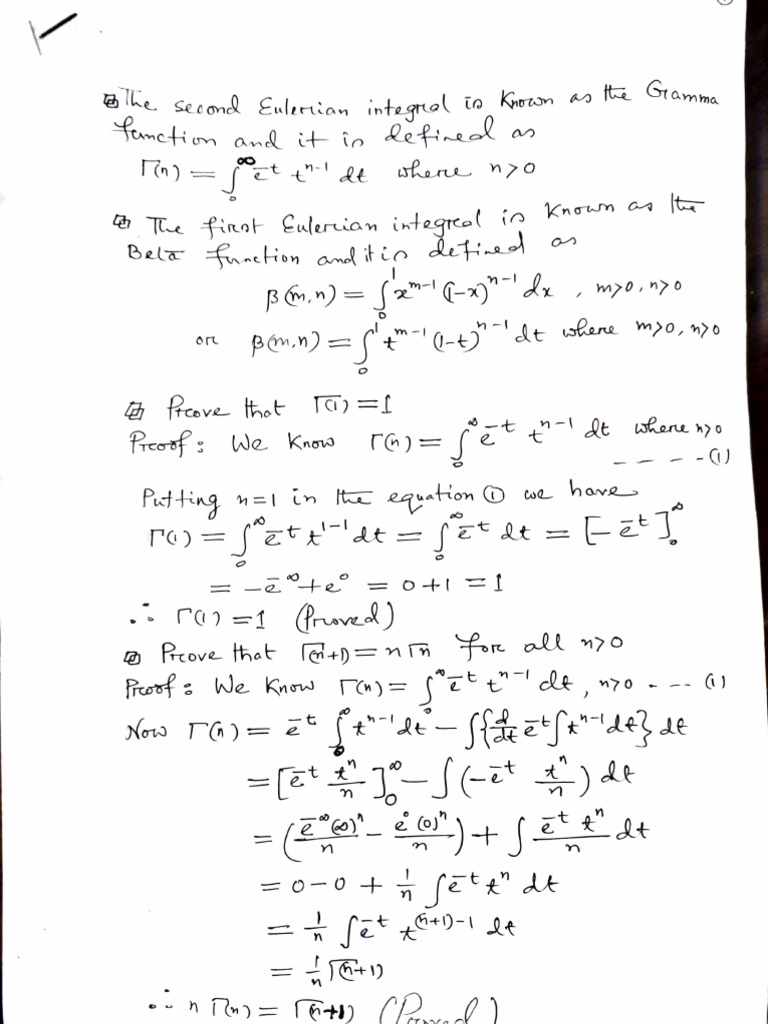 The second Eulerian integral is known as the Gamma
function and it is defined as
Γ(n) = ∫₀^∞ e^-t t^n-1 dt where n>0
The first Eulerian integral is known as the
Beta function and it is defined as
β(m,n) = ∫₀^1 x^m-1 (1-x)^n-1 dx , m>0, n>0
or β(m,n) = ∫₀^1 t^m-1 (1-t)^n-1 dt where m>0, n>0
Prove that Γ(1) = 1
Proof : We know Γ(n) = ∫₀^∞ e^-t t^n-1 dt where n>0
- - - - (1)
Putting n=1 in the equation ① we have
Γ(1) = ∫₀^∞ e^-t t^1-1 dt = ∫₀^∞ e^-t dt = [-e^-t]₀^∞
= -e^-∞ + e^0 = 0+1 = 1
∴ Γ(1) = 1 (Proved)
Prove that Γ(n+1) = n Γn for all n>0
Proof : We know Γ(n) = ∫₀^∞ e^-t t^n-1 dt, n>0 - - - (1)
Now Γ(n) = e^-t ∫₀^∞ t^n-1 dt - ∫{d/dt e^-t ∫t^n-1 dt} dt
= [e^-t t^n/n]₀^∞ - ∫(-e^-t t^n/n) dt
= (e^-∞(∞)^n/n - e^0(0)^n/n) + ∫ e^-t t^n/n dt
= 0-0 + 1/n ∫e^-t t^n dt
= 1/n ∫e^-t t^(n+1)-1 dt
= 1/n Γ(n+1)
∴ n Γ(n) = Γ(n+1) (Proved)